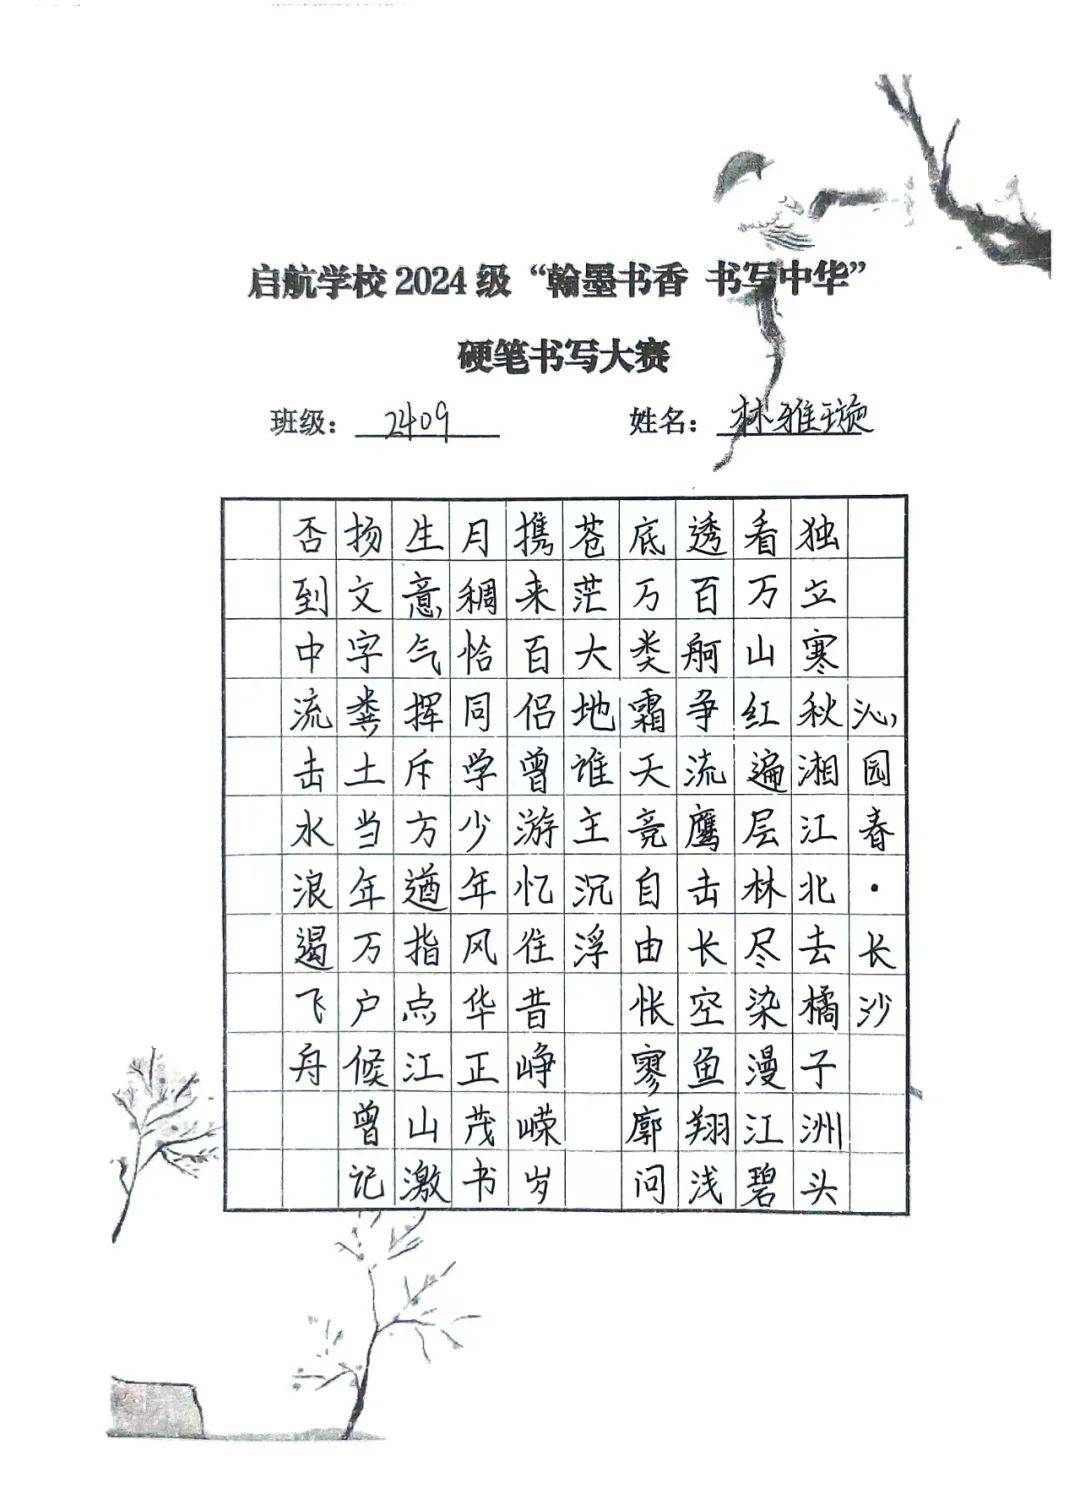 启航学校 2024 级 “翰墨书香 书写中华”
硬笔书写大赛
班级: 2409 姓名: 林雅璇
沁园春·长沙
独立寒秋湘江北去橘子洲头
看万山红遍层林尽染漫江碧
透百舸争流鹰击长空鱼翔浅
底万类霜天竞自由怅寥廓问
苍茫大地谁主沉浮
携来百侣曾游忆往昔峥嵘岁
月稠恰同学少年风华正茂书
生意气挥斥方遒指点江山激
扬文字粪土当年万户候曾记
否到中流击水浪遏飞舟